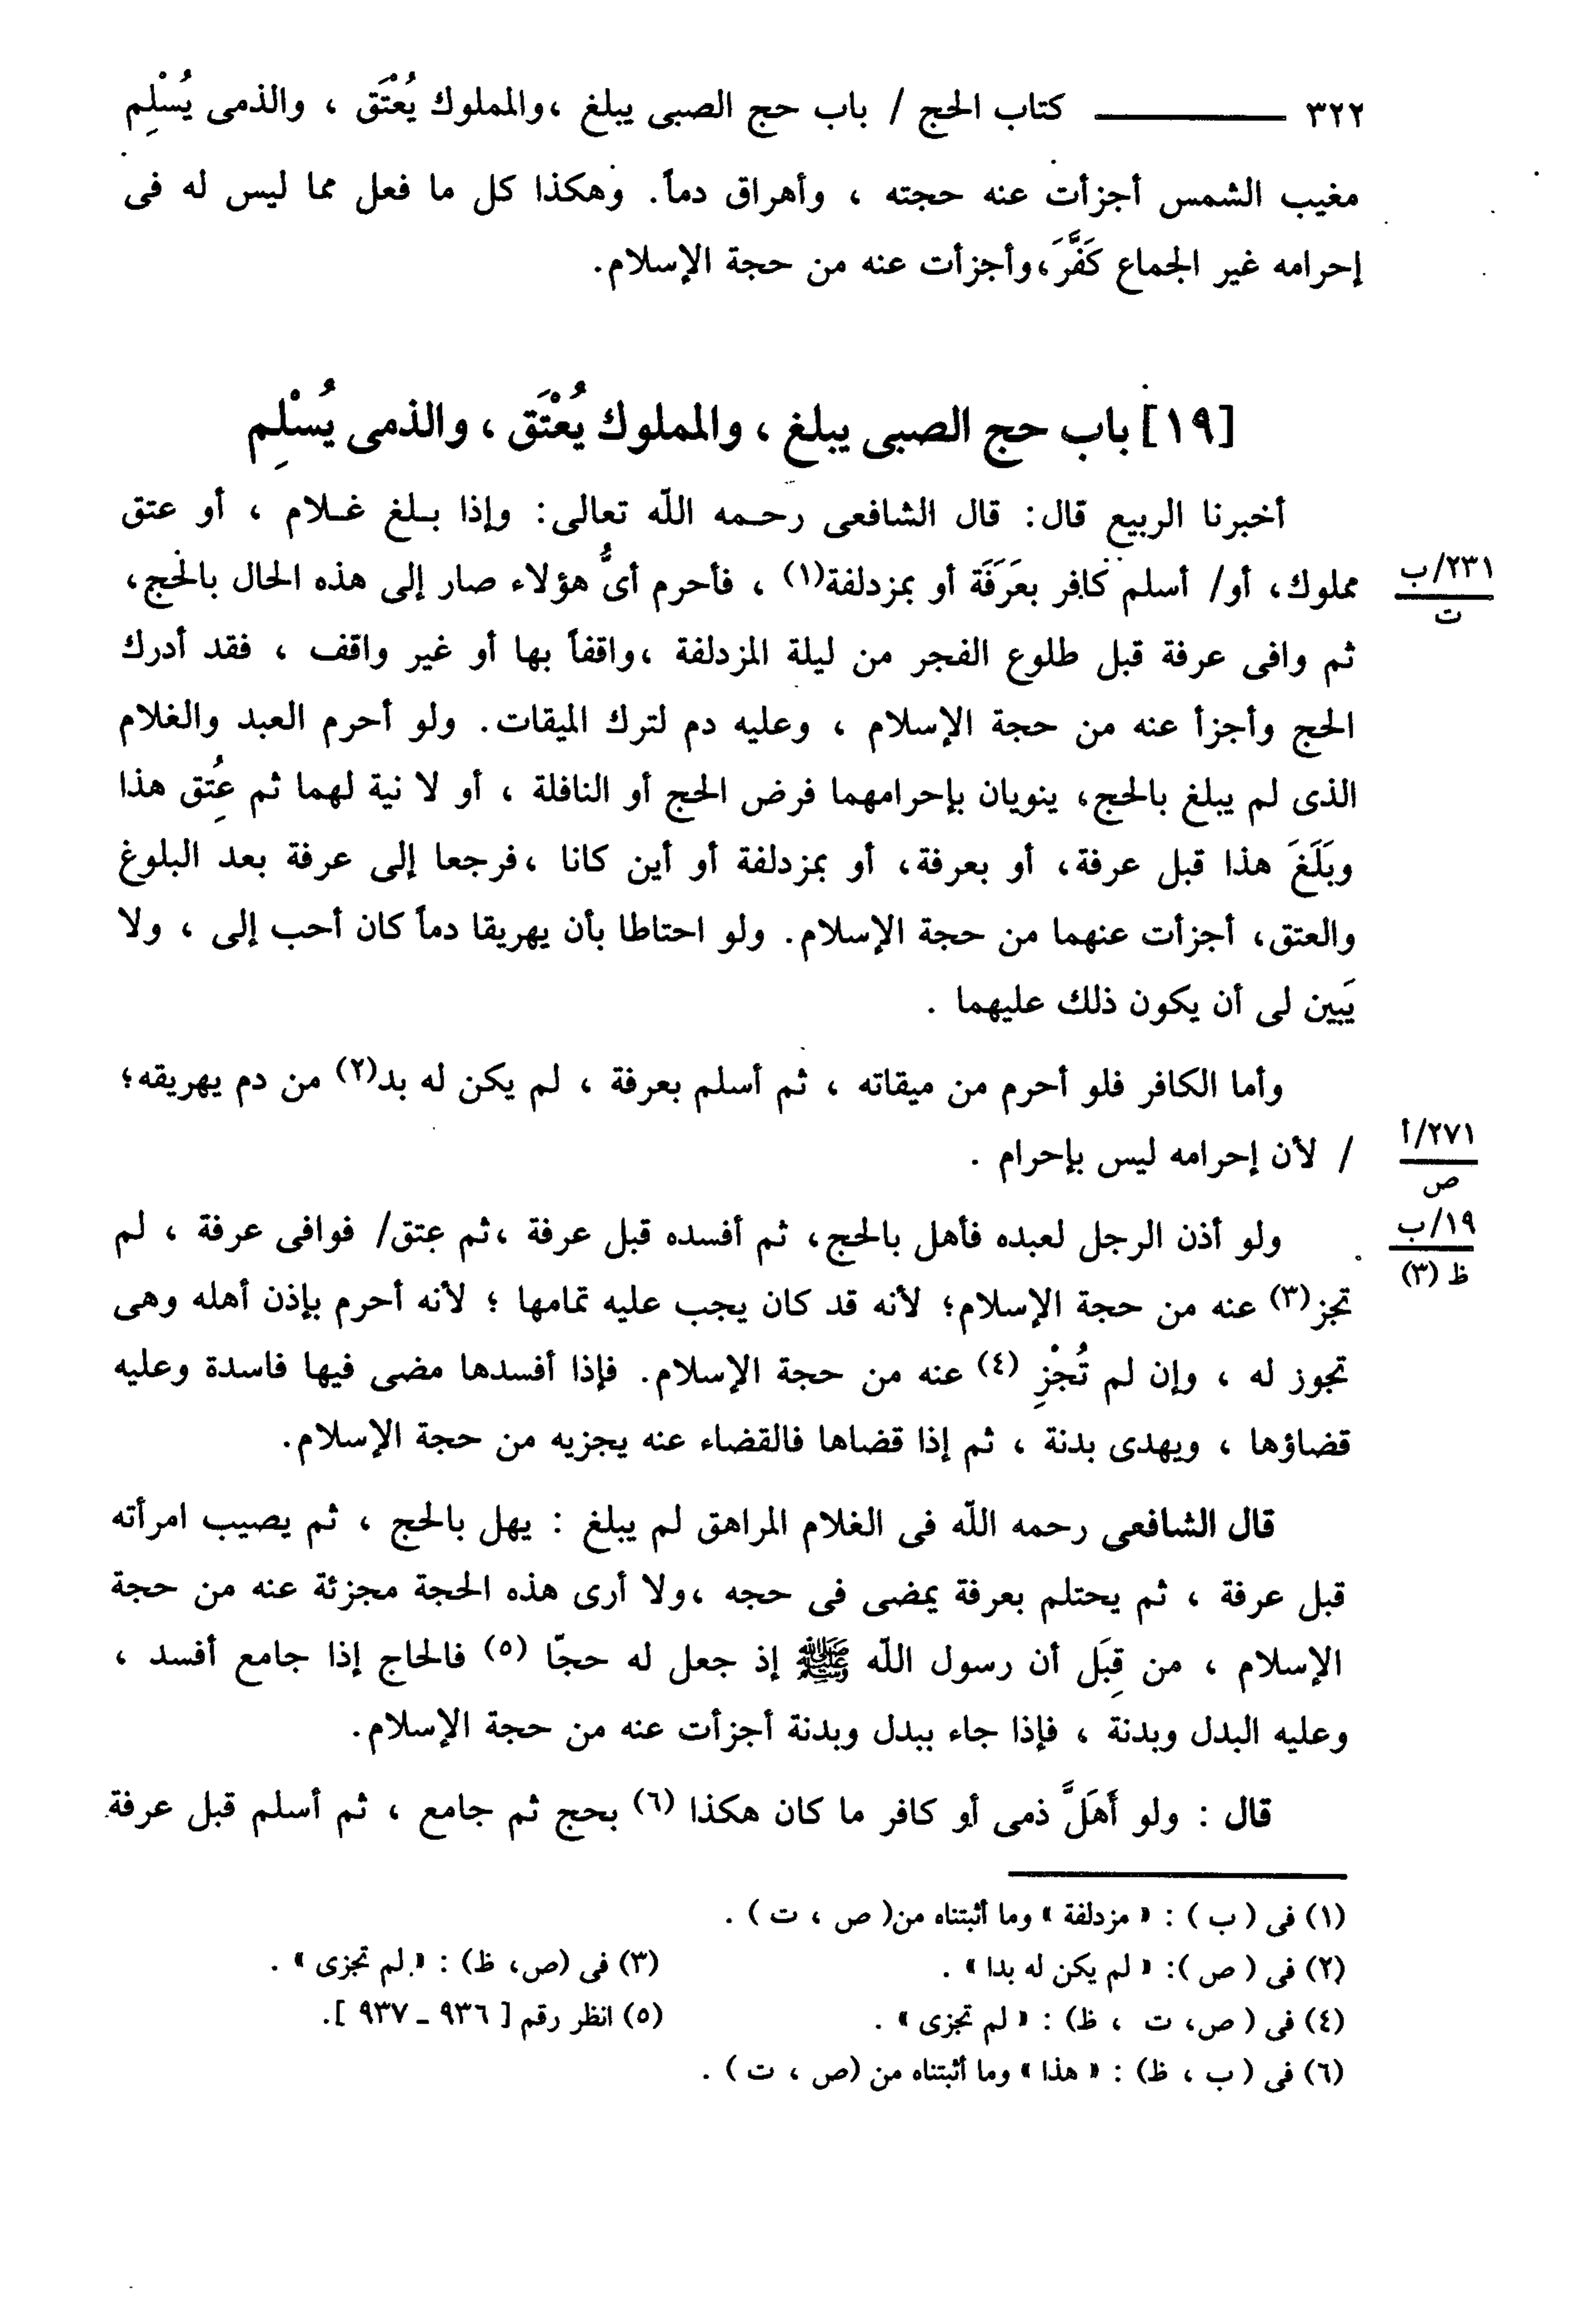 ٣٢٢ ـــــــ كتاب الحج / باب حج الصبى يبلغ ،والمملوك يُعْتَق ، والذمى يُسْلِم
مغيب الشمس أجزأت عنه حجته ، وأهراق دماً. وهكذا كل ما فعل مما ليس له فى
إحرامه غير الجماع كَفَّرَ،وأجزأت عنه من حجة الإسلام.
[١٩] باب حج الصبى يبلغ ، والمملوك يُعْتَق ، والذمى يُسْلِم
أخبرنا الربيع قال: قال الشافعى رحمه اللّه تعالى: وإذا بلغ غلام ، أو عتق
مملوك، أو/ أسلم كافر بعَرَفَة أو بمزدلفة(١) ، فأحرم أىُّ هؤلاء صار إلى هذه الحال بالحج،
٢٣١/ب
ت
ثم وافى عرفة قبل طلوع الفجر من ليلة المزدلفة ،واقفاً بها أو غير واقف ، فقد أدرك
الحج وأجزأ عنه من حجة الإسلام ، وعليه دم لترك الميقات. ولو أحرم العبد والغلام
الذى لم يبلغ بالحج، ينويان بإحرامهما فرض الحج أو النافلة ، أو لا نية لهما ثم عُتِق هذا
وبَلَغَ هذا قبل عرفة، أو بعرفة، أو بمزدلفة أو أين كانا ،فرجعا إلى عرفة بعد البلوغ
والعتق، أجزأت عنهما من حجة الإسلام. ولو احتاطا بأن يهريقا دماً كان أحب إلى ، ولا
يَبين لى أن يكون ذلك عليهما .
وأما الكافر فلو أحرم من ميقاته ، ثم أسلم بعرفة ، لم يكن له بد(٢) من دم يهريقه؛
/ لأن إحرامه ليس بإحرام .
٢٧١/أ
ص
ولو أذن الرجل لعبده فأهل بالحج، ثم أفسده قبل عرفة ،ثم عتق/ فوافى عرفة ، لم
١٩/ب
ظ (٣)
تجز(٣) عنه من حجة الإسلام؛ لأنه قد كان يجب عليه تمامها ؛ لأنه أحرم بإذن أهله وهى
تجوز له ، وإن لم تُجْزِ (٤) عنه من حجة الإسلام. فإذا أفسدها مضى فيها فاسدة وعليه
قضاؤها ، ويهدى بدنة ، ثم إذا قضاها فالقضاء عنه يجزيه من حجة الإسلام.
قال الشافعى رحمه اللّه فى الغلام المراهق لم يبلغ : يهل بالحج ، ثم يصيب امرأته
قبل عرفة ، ثم يحتلم بعرفة يمضى فى حجه ،ولا أرى هذه الحجة مجزئة عنه من حجة
الإسلام ، من قِبَل أن رسول اللّه ﷺ إذ جعل له حجّا (٥) فالحاج إذا جامع أفسد ،
وعليه البدل وبدنة ، فإذا جاء ببدل وبدنة أجزأت عنه من حجة الإسلام.
قال : ولو أَهَلَّ ذمى أو كافر ما كان هكذا (٦) بحج ثم جامع ، ثم أسلم قبل عرفة
(١) فى ( ب ) : « مزدلفة » وما أثبتناه من( ص ، ت ) .
(٢) فى ( ص ): « لم يكن له بدا » . (٣) فى (ص، ظ) : « لم تجزى » .
(٤) فى ( ص، ت ، ظ) : « لم تجزى » . (٥) انظر رقم [ ٩٣٦ ـ ٩٣٧ ].
(٦) فى ( ب ، ظ) : « هذا » وما أثبتناه من (ص ، ت ) .